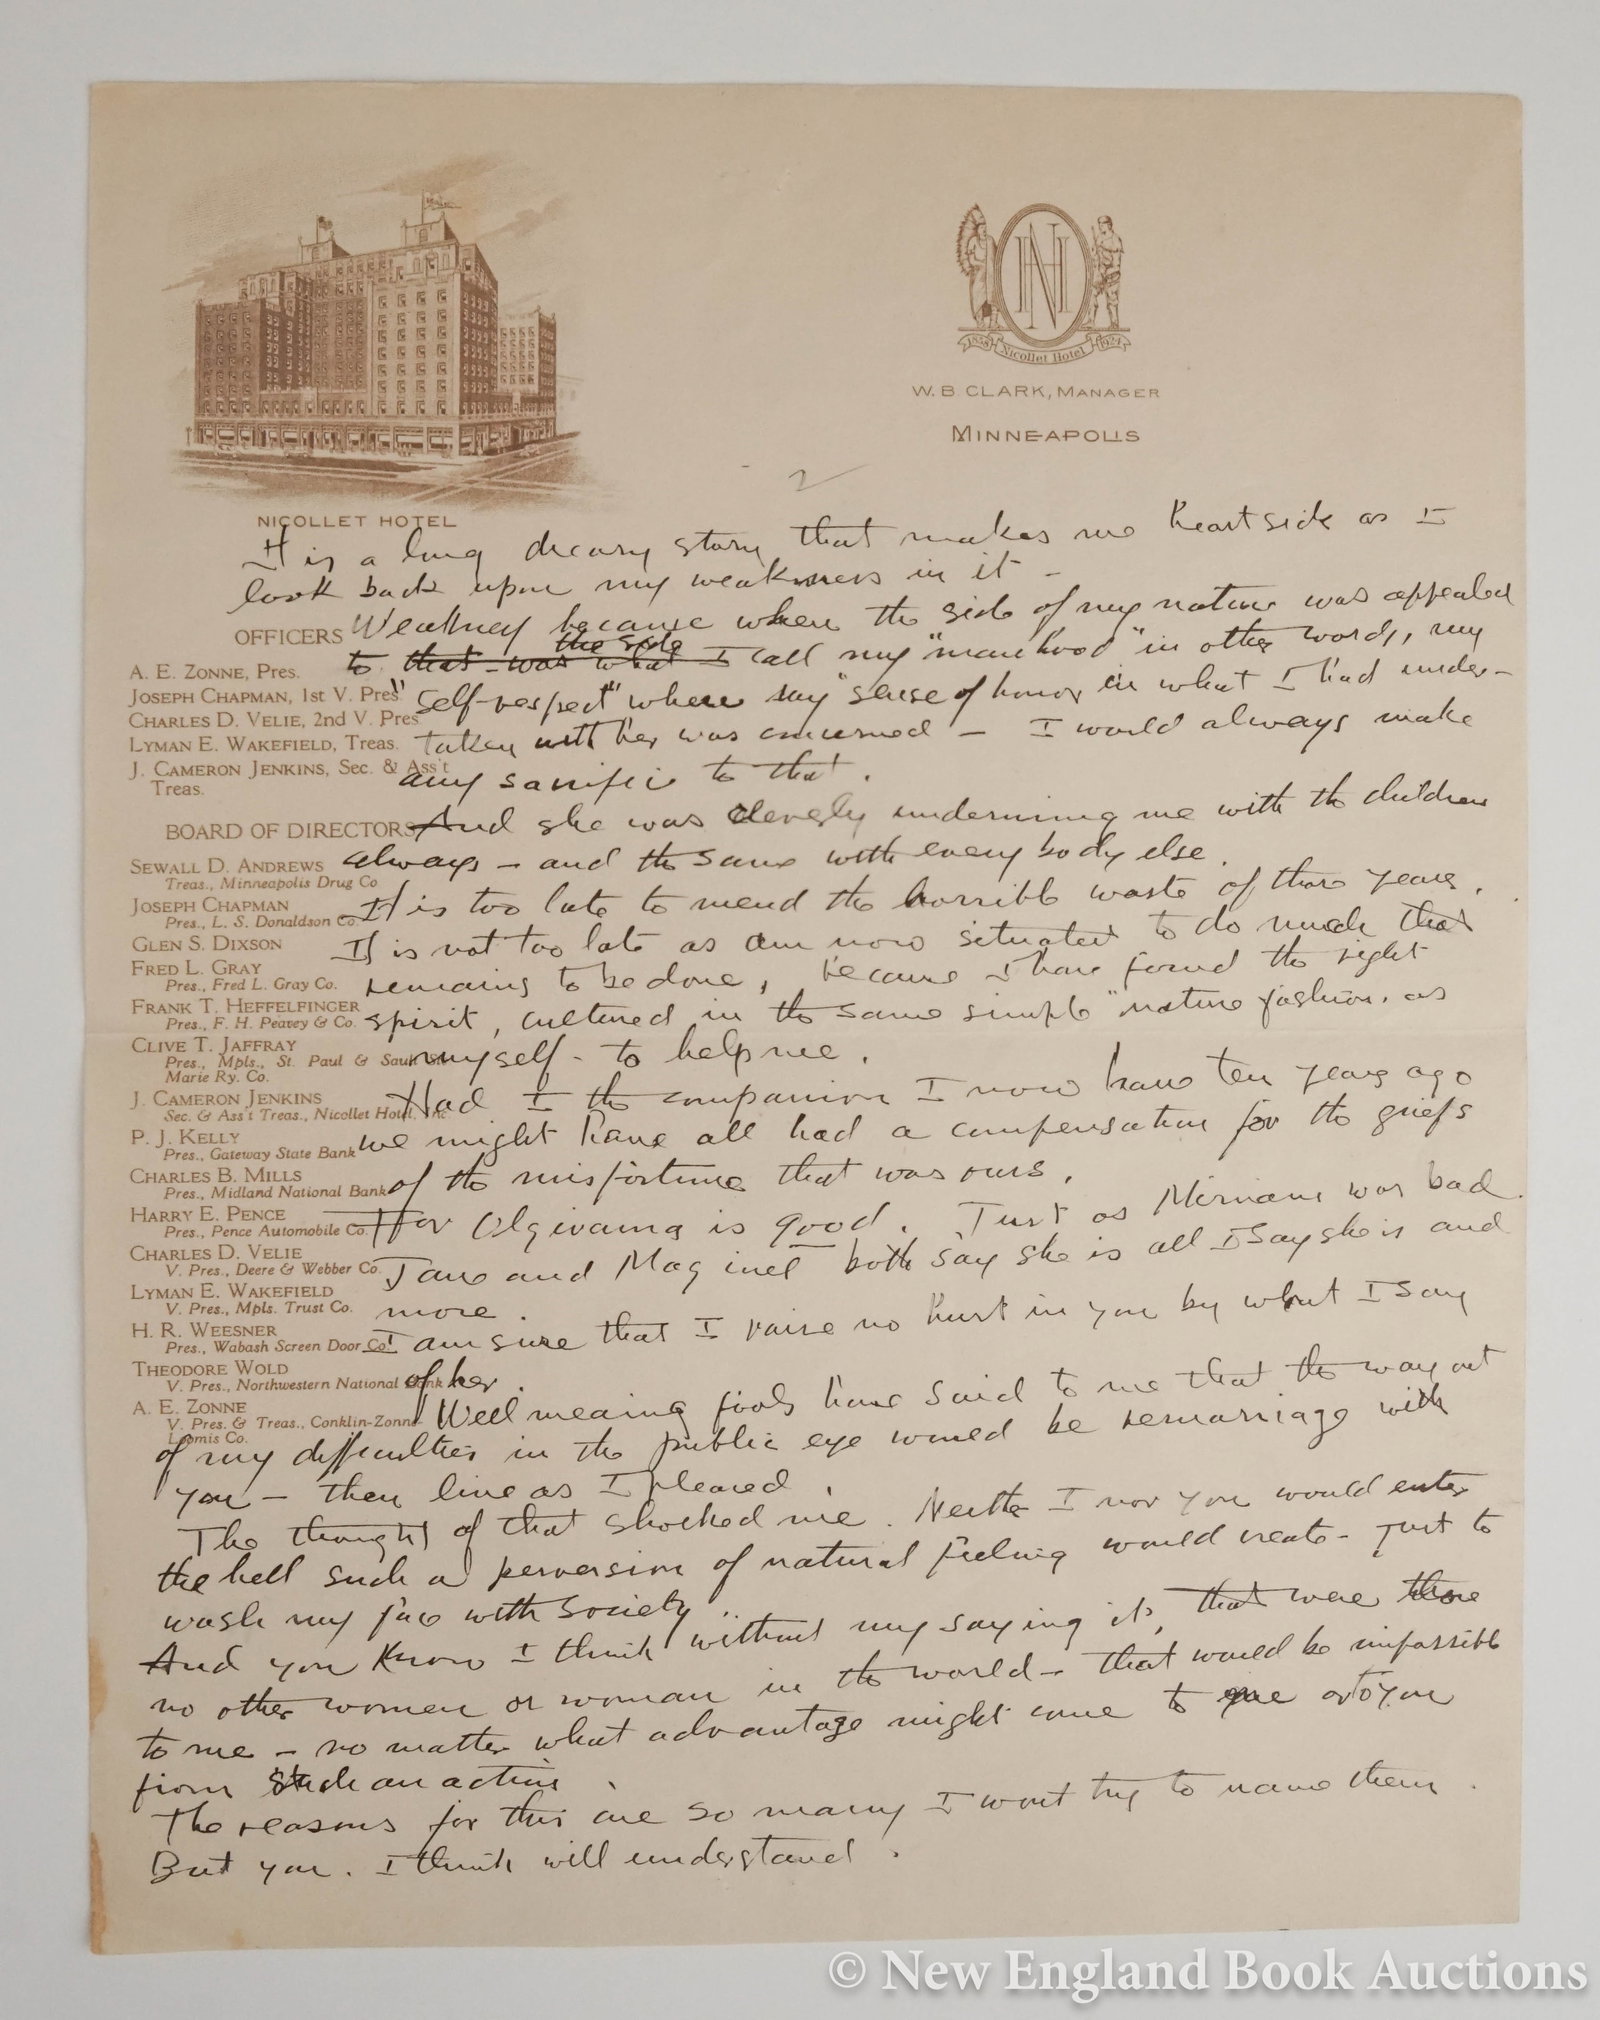 1858 Nicollet Hotel 1924
W. B. CLARK, MANAGER
MINNEAPOLIS
2
NICOLLET HOTEL
It is a long dreary story that makes me heartsick as I
look back upon my weakness in it -
Weakness because where the side of my nature was appealed
to that was what the side I call my "manhood" in other words, my
"self-respect" where my "sense of honor in what I had under-
taken with her was concerned - I would always make
any sacrifice to that.
And she was cleverly undermining me with the children
always - and the same with every body else.
It is too late to mend the horrible waste of those years.
It is not too late as am now situated to do much that
remains to be done, because I have found the right
spirit, cultured in the same simple "nature fashion, as
myself - to help me.
Had I the companion I now have ten years ago
we might have all had a compensation for the griefs
of the misfortune that was ours.
For Olgivanna is good. Just as Miriam was bad.
Jane and Maginel both say she is all I say she is and
more.
I am sure that I raise no hurt in you by what I say
of her.
Well meaning fools have said to me that the way out
of my difficulties in the public eye would be remarriage with
you - then live as I pleased.
The thought of that shocked me. Neither I nor you would enter
the hell such a perversion of natural feeling would create - just to
wash my face with society.
And you know I think without my saying it, that were there
no other women or woman in the world - that would be impossible
to me - no matter what advantage might come to me or to you
from such an action.
The reasons for this are so many I wont try to name them.
But you. I think will understand.
OFFICERS
A. E. ZONNE, Pres.
JOSEPH CHAPMAN, 1st V. Pres.
CHARLES D. VELIE, 2nd V. Pres.
LYMAN E. WAKEFIELD, Treas.
J. CAMERON JENKINS, Sec. & Ass't
Treas.
BOARD OF DIRECTORS
SEWALL D. ANDREWS
Treas., Minneapolis Drug Co
JOSEPH CHAPMAN
Pres., L. S. Donaldson Co.
GLEN S. DIXSON
FRED L. GRAY
Pres., Fred L. Gray Co.
FRANK T. HEFFELFINGER
Pres., F. H. Peavey & Co.
CLIVE T. JAFFRAY
Pres., Mpls., St. Paul & Sault Ste.
Marie Ry. Co.
J. CAMERON JENKINS
Sec. & Ass't Treas., Nicollet Hotel, Inc
P. J. KELLY
Pres., Gateway State Bank
CHARLES B. MILLS
Pres., Midland National Bank
HARRY E. PENCE
Pres., Pence Automobile Co.
CHARLES D. VELIE
V. Pres., Deere & Webber Co.
LYMAN E. WAKEFIELD
V. Pres., Mpls. Trust Co.
H. R. WEESNER
Pres., Wabash Screen Door Co.
THEODORE WOLD
V. Pres., Northwestern National Bank
A. E. ZONNE
V. Pres. & Treas., Conklin-Zonne-
Loomis Co.
© New England Book Auctions